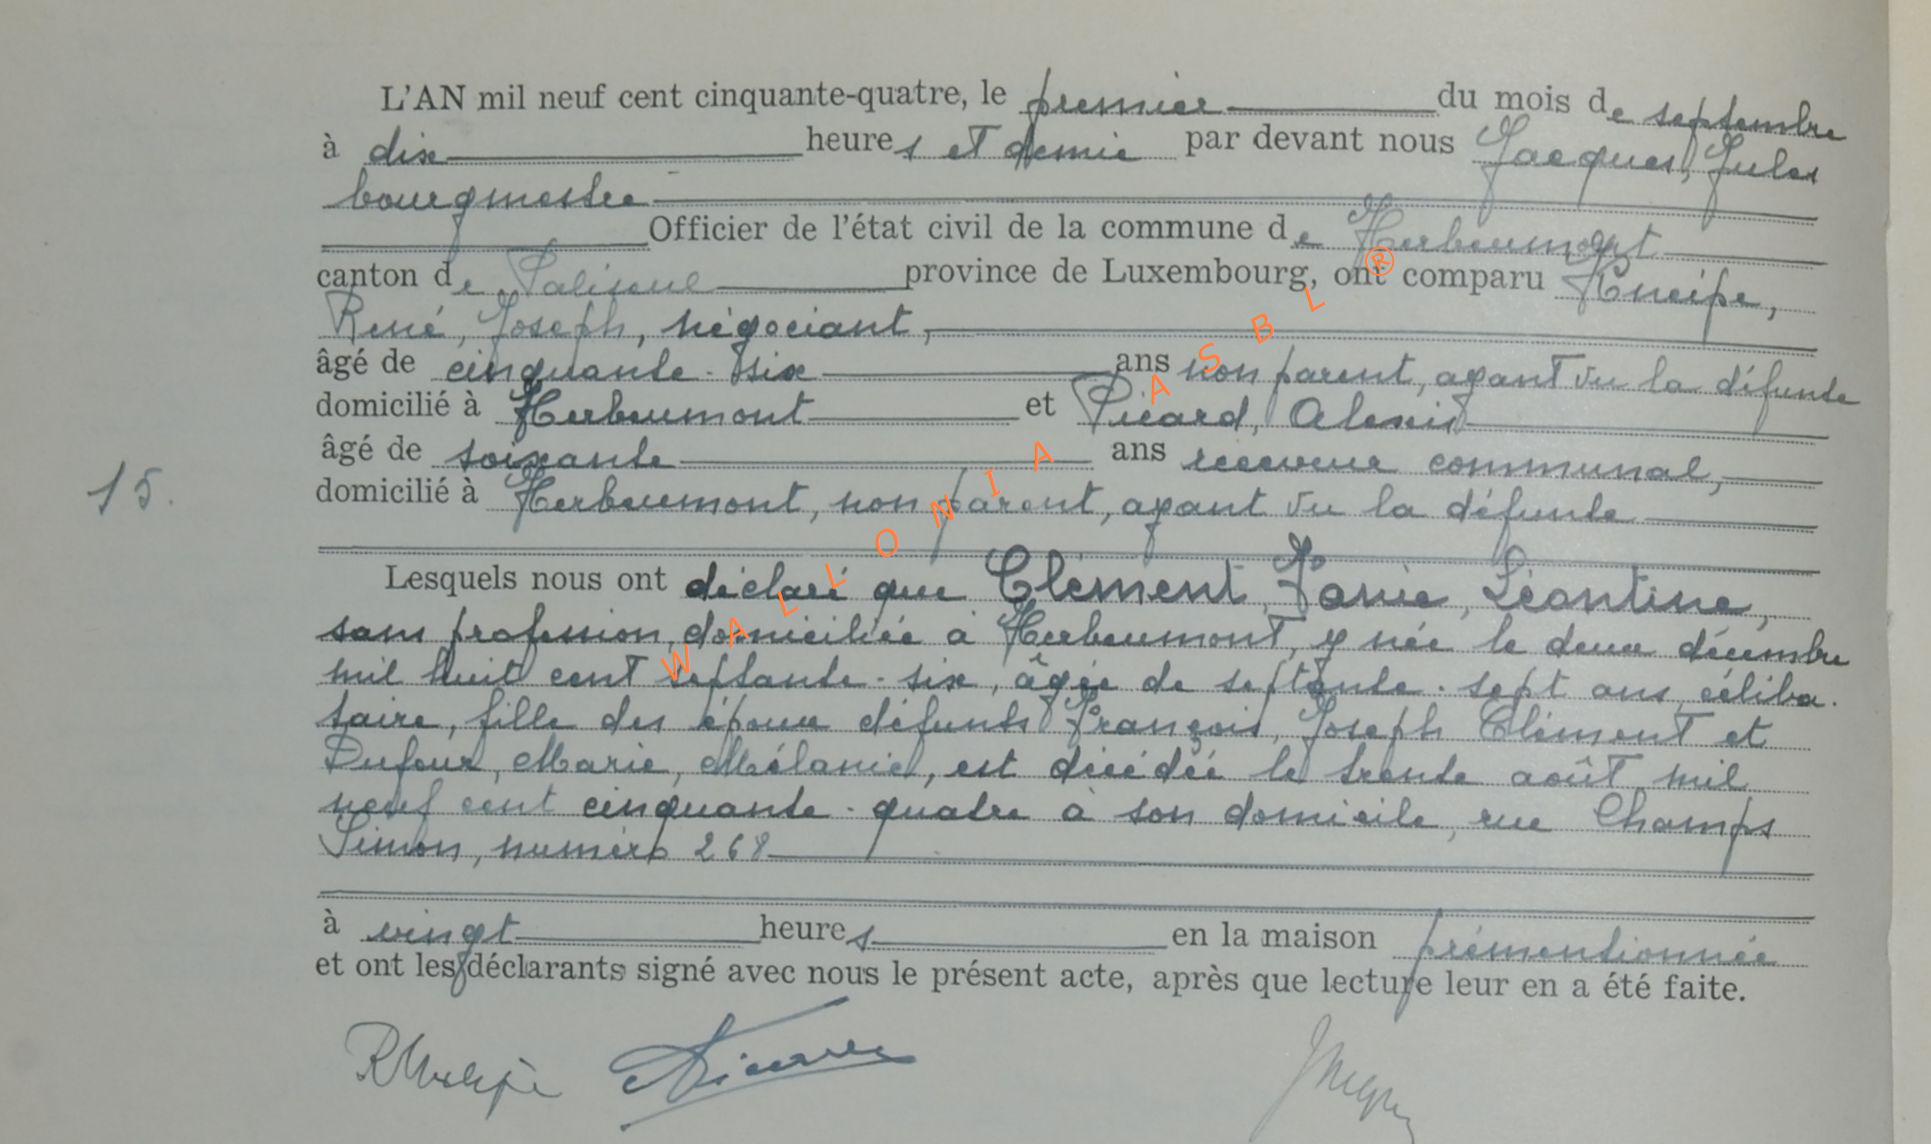 L'AN mil neuf cent cinquante-quatre, le premier du mois de septembre
à dix heures et demie par devant nous Jacques, Jules
bourgmestre
Officier de l'état civil de la commune de Herbeumont
canton de Paliseul province de Luxembourg, ont comparu Kneipe,
René, Joseph, négociant,
âgé de cinquante-six ans non parent, ayant vu la défunte
domicilié à Herbeumont et Picard, Alexis
âgé de soixante ans receveur communal,
15. domicilié à Herbeumont, non parent, ayant vu la défunte
Lesquels nous ont déclaré que Clément, Léontine,
sans profession, domiciliée à Herbeumont, y née le deux décembre
mil huit cent septante-six, âgée de septante-sept ans, céliba-
taire, fille des époux défunts François, Joseph Clément et
Dufour, Marie, Mélanie, est décédée le trente août mil
neuf cent cinquante-quatre à son domicile, rue Champs
Simon, numéro 268
à vingt heures en la maison prémentionnée
et ont les déclarants signé avec nous le présent acte, après que lecture leur en a été faite.
WALLONIA ASBL ®